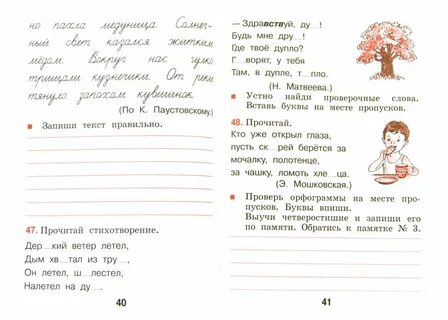 но пахла медуница. Солнеч-
ный свет казался житким
мёдом. Вокруг нас гулко
трищали кузнечики. От реки
тянуло запохом кувшинок.
(По К. Паустовскому.)
Запиши текст правильно.
47. Прочитай стихотворение.
Дер...кий ветер летел,
Дым хв...тал из тру...,
Он летел, ш...лестел,
Налетел на ду... .
40
— Здравствуй, ду...!
Будь мне дру...!
Где твоё дупло?
Г...ворят, у тебя
Там, в дупле, т...пло.
(Н. Матвеева.)
Устно найди проверочные слова.
Вставь буквы на месте пропусков.
48. Прочитай.
Кто уже открыл глаза,
пусть ск...рей берётся за
мочалку, полотенце,
за чашку, ломоть хле...ца!
(Э. Мошковская.)
Проверь орфограммы на месте про-
пусков. Буквы впиши.
Выучи четверостишие и запиши его
по памяти. Обратись к памятке № 3.
41